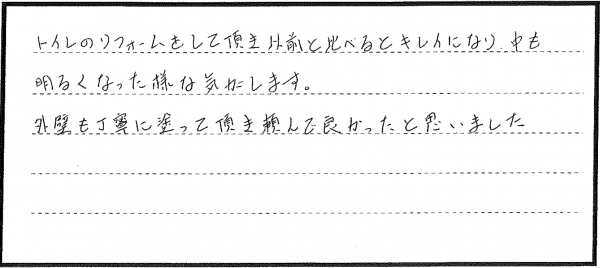 トイレのリフォームをして頂き以前と比べるとキレイになり、中も
明るくなった様な気がします。
外壁も丁寧に塗って頂き頼んで良かったと思いました